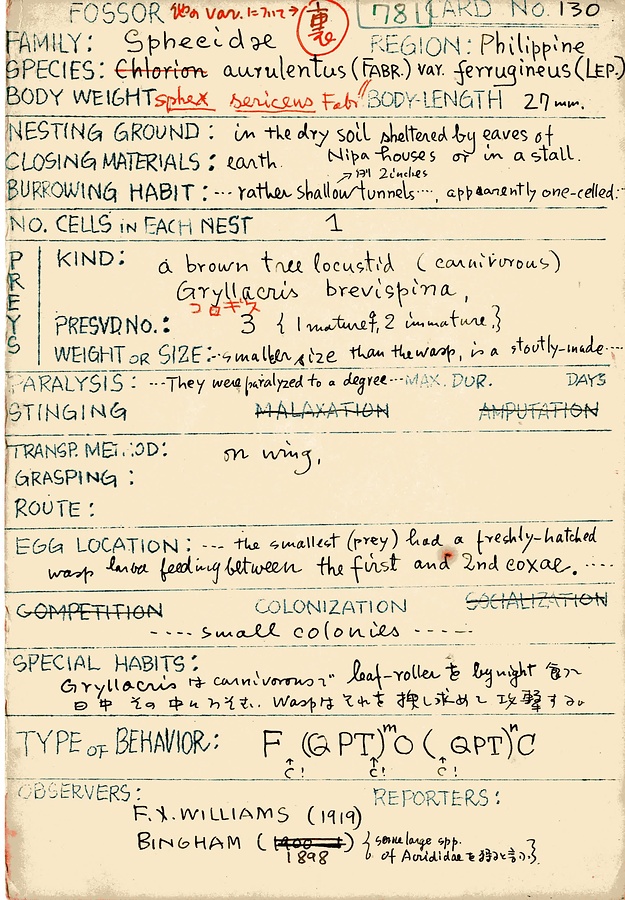 FOSSOR 他の var. について→ 裏 781 CARD NO. 130
FAMILY: Sphecidae REGION: Philippine
SPECIES: Chlorion aurulentus (FABR.) var. ferrugineus (LEP.)
BODY WEIGHT sphex sericeus Fabr. BODY-LENGTH 27 mm.
NESTING GROUND: in the dry soil sheltered by eaves of
Nipa houses or in a stall.
CLOSING MATERIALS: earth.
2 inches
BURROWING HABIT: --- rather shallow tunnels ----, apparently one-celled:-
NO. CELLS IN EACH NEST 1
PREYS
KIND: a brown tree locustid (carnivorous)
Gryllacris brevispina,
コロギス
PRESVD NO.: 3 {1 mature♀, 2 immature,}
WEIGHT OR SIZE:-- smaller size than the wasp, is a stoutly-made----
PARALYSIS: ---They were paralyzed to a degree--- MAX. DUR. DAYS
STINGING MALAXATION AMPUTATION
TRANSP. METHOD: on wing,
GRASPING:
ROUTE:
EGG LOCATION: --- the smallest (prey) had a freshly-hatched
wasp larva feeding between the first and 2nd coxae. ----
COMPETITION COLONIZATION SOCIALIZATION
---- small colonies -----
SPECIAL HABITS:
Gryllacris は carnivorous で leaf-roller を by night 食い
日中 その中にひそむ. Wasp は それを 捜し求めて 攻撃する。
TYPE OF BEHAVIOR: F (QPT)mO (QPT)nC
↑ ↑ ↑
C! C! C!
OBSERVERS: REPORTERS:
F.X. WILLIAMS (1919)
BINGHAM (1900) {some large spp.
1898 of Acrididae を狩ると言う.}